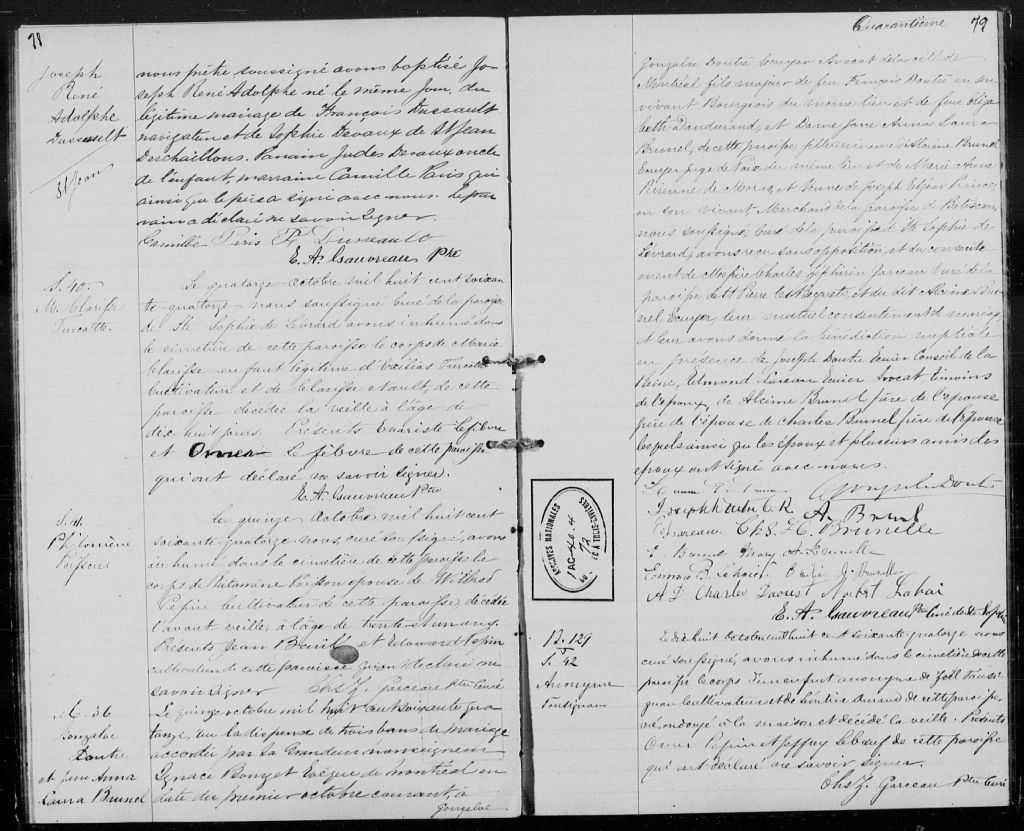 71
Joseph
René
Adolphe
Dussault
St Jean
nous prêtre soussigné avons baptisé Jo-
seph René Adolphe né le même jour, du
légitime mariage de François Dussault
navigateur et de Sophie Devaux de St Jean
Deschaillons. Parrain Judes Devaux oncle
de l'enfant, marraine Camille Paris qui
ainsi que le père a signé avec nous. Le par
rain a déclaré ne savoir signer.
Camille Paris F Dusseault
E. A. Gauvreau Ptre
S. 40.
M. Clarisse
Turcotte.
Le quatorze octobre mil huit cent soixan
te-quatorze nous soussigné curé de la paroisse
de Ste Sophie de Lévrard avons inhumé dans
le cimetière de cette paroisse le corps de Marie
Clarisse enfant légitime d'Exilias Turcotte
cultivateur et de Clarisse Nault, de cette
paroisse décédée la veille à l'âge de
dix-huit jours. Présents Evariste Lefebvre
et Omer Lefebvre de cette paroisse
qui ont déclaré ne savoir signer.
E. A. Gauvreau Ptre
S. 41.
Philomène
Poisson
Le quinze octobre mil huit cent
soixante-quatorze nous curé soussigné, avons
inhumé dans le cimetière de cette paroisse le
corps de Philomène Poisson épouse de Wilfred
Pepin cultivateur de cette paroisse, décédée
l'avant veille, à l'âge de trente-un ans.
Présents Jean Baril et Edouard Pepin
cultivateur de cette paroisse qui ont déclaré ne
savoir signer Chs Z. Garceau Ptre Curé
M. 36
Gonzalve
Doutre
et Jane Anna
Laura Brunel
Le quinze octobre mil huit cent soixante qua
torze, vu la dispense de trois bans de mariage
accordée par Sa Grandeur monseigneur
Ignace Bourget Evêque de Montréal en
date du premier octobre courant, à
Gonzalve
Quarantième 79
Gonzalve Doutre Ecuyer Avocat de la cité de
Montréal fils majeur de feu François Doutre en son
vivant Bourgeois du même lieu et de feue Eliza
beth Dandurand, et Dame Jane Anna Laura
Brunel, de cette paroisse, fille mineure d'Alcime Brunel
Ecuyer juge de Paix du même lieu et de Marie Anne
et Veuve de Joseph Edgar Prince,
en son vivant Marchand de la paroisse de Bécancour
nous soussigné, curé de la paroisse de Ste Sophie de
Lévrard, avons reçu sans opposition, et du consente-
ment de Messire Charles Zéphirin Garceau Curé de la
paroisse de St Pierre les Becquets, et du dit Alcime Bru
nel Ecuyer, leur mutuel consentement de mariage
et leur avons donné la bénédiction nuptiale
en présence de Joseph Doutre Ecuier Conseil de la
Reine, Edmond Lareau Ecuier Avocat témoins
de l'époux, de Alcime Brunel père de l'épouse
père de l'épouse de Charles Brunel frère de l'épouse
lesquels ainsi que les époux et plusieurs amis des
époux ont signé avec nous.
Gonzalve Doutre
Joseph Doutre C. R. A. Brunel
E Lareau Chs. H. Brunelle
E. Brunel Mary A. Brunelle
A D Charles Daoust
E. A. Gauvreau Ptre Curé de Ste Sophie
ARCHIVES NATIONALES
1AC-40-4
72
DU QUÉBEC A TROIS-RIVIÈRES
B. 129
S. 42
Anonyme
Toutignan
Le dix huit octobre mil huit cent soixante-quatorze nous
curé soussigné, avons inhumé dans le cimetière de cette
paroisse le corps d'un enfant anonyme de Joël Trasi
gnan cultivateur et de Léontine Durand de cette paroisse
né, ondoyé à la maison et décédé la veille. Présents
Omer Pepin et Joffroy Leboeuf de cette paroisse
qui ont déclaré ne savoir signer.
Chs Z. Garceau Ptre Curé